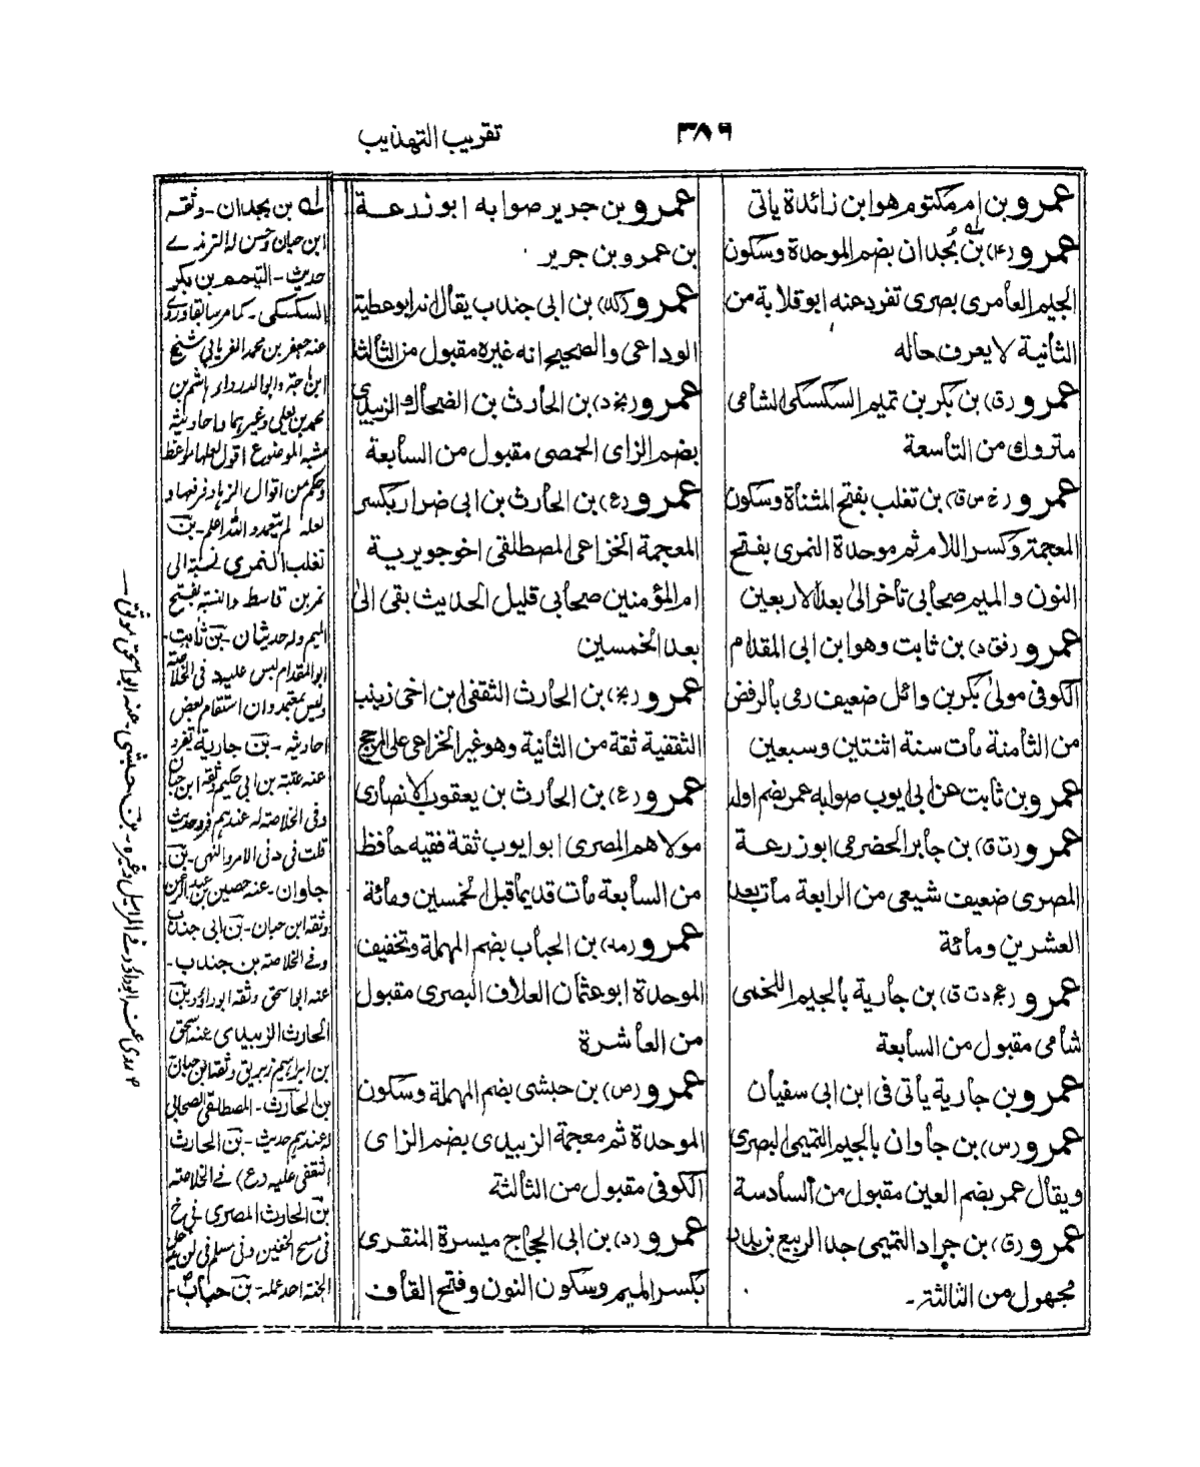 ٣٨٦
تقريب التهذيب
عمرو بن ام مكتوم هو ابن زائدة ياتى
عمرو (٤) بن بُجدان بضم الموحدة وسكون
الجيم العامرى بصرى تفرد عنه ابو قلابة من
الثانية لا يعرف حاله
عمرو (ق) بن بكر بن تميم السكسكى الشامى
متروك من التاسعة
عمرو (خ س ق) بن تغلب بفتح المثناة وسكون
المعجمة وكسر اللام ثم موحدة النمرى بفتح
النون والميم صحابى تأخر الى بعد الاربعين
عمرو (فق د) بن ثابت وهو ابن ابى المقدام
الكوفى مولى بكر بن وائل ضعيف رمى بالرفض
من الثامنة مات سنة اثنتين وسبعين
عمرو بن ثابت عن ابى ايوب صوابه عمر بضم اوله
عمرو (ت ق) بن جابر الحضرمى ابو زرعة
المصرى ضعيف شيعى من الرابعة مات بعد
العشرين ومائة
عمرو (عخ د ت ق) بن جارية بالجيم اللخمى
شامى مقبول من السابعة
عمرو بن جارية يأتى فى ابن ابى سفيان
عمرو (س) بن جاوان بالجيم التميمى البصرى
ويقال عمر بضم العين مقبول من السادسة
عمرو (ق) بن جراد التميمى جد الربيع بن بدر
مجهول من الثالثة۔
عمرو بن جدير صوابه ابو زرعة
بن عمرو بن جرير
عمرو (كد) بن ابى جندب يقال انه ابو عطية
الوداعى والصحيح انه غيره مقبول من الثالثة
عمرو (بخ د) بن الحارث بن الضحاك الزبيدى
بضم الزاى الحمصى مقبول من السابعة
عمرو (ع) بن الحارث بن ابى ضرار بكسر
المعجمة الخزاعى المصطلقى اخو جويرية
ام المؤمنين صحابى قليل الحديث بقى الى
بعد الخمسين
عمرو (بخ) بن الحارث الثقفى ابن اخى زينب
الثقفية ثقة من الثانية وهو غير الخزاعى على الراجح
عمرو (ع) بن الحارث بن يعقوب الانصارى
مولاهم المصرى ابو ايوب ثقة فقيه حافظ
من السابعة مات قديما قبل الخمسين ومائة
عمرو (مد) بن الحباب بضم المهملة وتخفيف
الموحدة ابو عثمان العلاف البصرى مقبول
من العاشرة
عمرو (ص) بن حبشى بضم المهملة وسكون
الموحدة ثم معجمة الزبيدى بضم الزاى
الكوفى مقبول من الثالثة
عمرو (د) بن ابى الحجاج ميسرة المنقرى
بكسر الميم وسكون النون وفتح القاف
له بن بجدان - وثقه
ابن حبان وحسن له الترمذے
حديث - التيم بن بكر
السكسكى - كما مر سابقا وروى
عنه جعفر بن محمد الفريابى شيخ
ابن ماجة وابو الدرداء هاشم بن
محمد بن يعلى وغيرهما واحاديثه
مشبه الموضوع اقول لعلها مواعظ
وحكم من اقوال الزهاد فرفعها و
لعله لم يتعمد والله اعلم - بن
تغلب النمرى نسبة الى
نمر بن قاسط والنسبة بفتح
الميم وله حديثان - بن ثابت
ابو المقدام ليس عليه فى الخلاصة
وليس بمعتمد وان استقام بعض
احاديثه - بن جارية تفرد
عنه عتبة بن ابى حكيم وثقه ابن حبان
وفى الخلاصة له عندهم فرد حديث
قلت فى دنى الامر والنهى - بن
جاوان - عنه حصين بن عبد الرحمن
وثقه ابن حبان - بن ابى جندب
وفے الخلاصة بن جندب -
عنه ابو اسحق وثقه ابو داؤد بن
الحارث الزبيدى عنه اسحق
بن ابراهيم زبريق وثقه ابن حبان
بن الحارث - المصطلقى الصحابى
له عندهم حديث - بن الحارث
الثقفى عليه (ع) فے الخلاصة
بن الحارث المصرى فى خ
فى مسح الخفين وفى مسلم فى لن يدخل
الجنة احد عمله - بن حباب -
م روى عنه ابو داؤد فے المراسيل وغيره - بن حبشى - عنه ابو اسحق موثق -